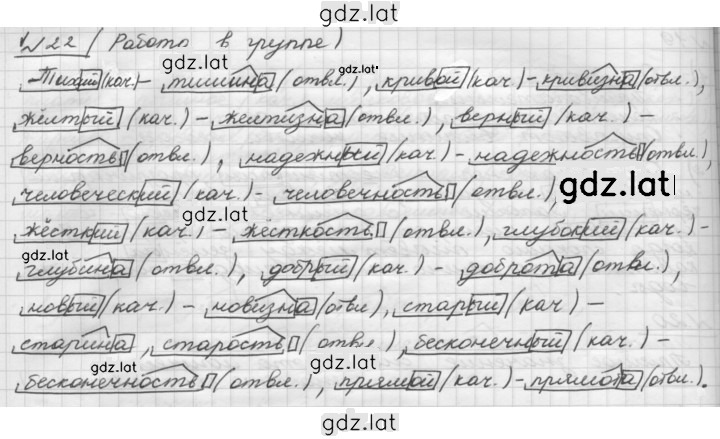 gdz.lat
№22 (Работа в группе)
gdz.lat
Тихий (кач.) – тишина (отвл.), кривой (кач.) – кривизна (отвл.),
gdz.lat
жёлтый (кач.) – желтизна (отвл.), верный (кач.) –
верность (отвл.), надежный (кач.) – надежность (отвл.),
человеческий (кач.) – человечность (отвл.),
gdz.lat
gdz.lat
жёсткий (кач.) – жёсткость (отвл.), глубокий (кач.) –
gdz.lat
глубина (отвл.), добрый (кач.) – доброта (отвл.),
новый (кач.) – новизна (отвл), старый (кач.) –
gdz.lat
старина, старость (отвл.), бесконечный (кач.) –
gdz.lat
бесконечность (отвл.), прямой (кач.) – прямота (отвл.).
gdz.lat